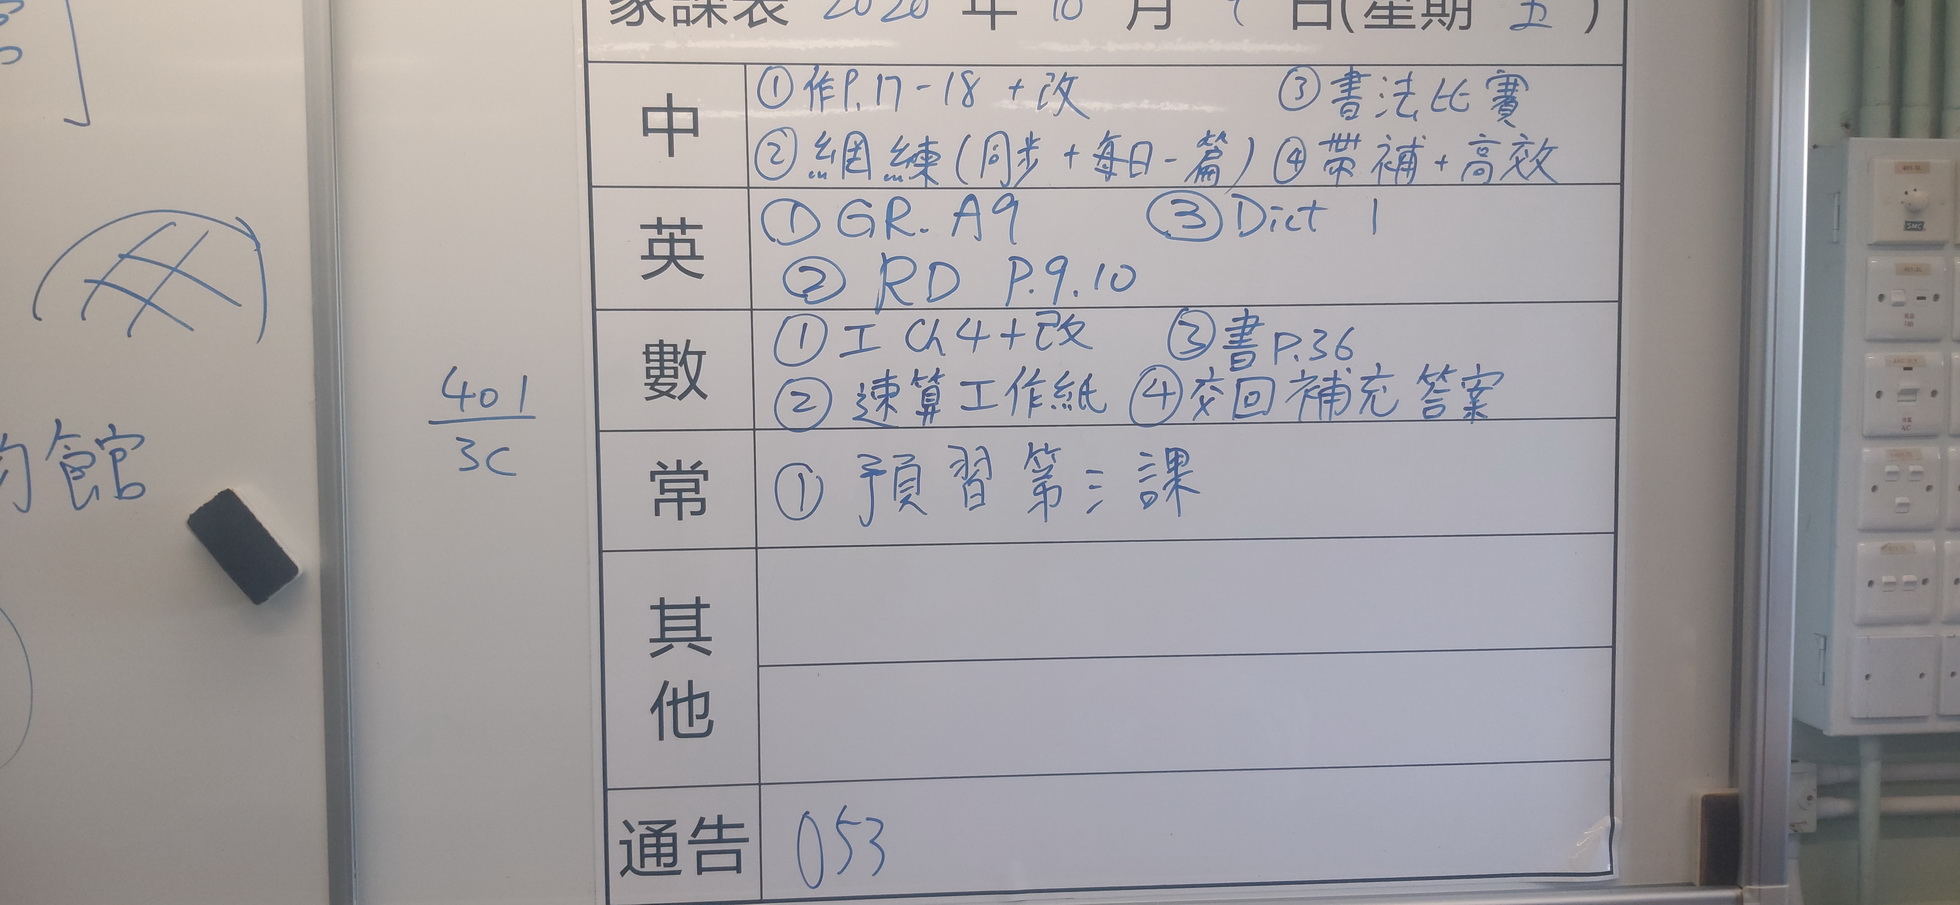 家課表 2020 年 10 月 9 日(星期 五 )
中
①作P.17-18 +改 ③書法比賽
②網練(同步+每日一篇) ④帶補+高效
英
①GR. A9 ③Dict 1
② RD P.9.10
數
①工 Ch4+改 ③書P.36
②速算工作紙 ④交回補充答案
常
① 預習第三課
其他
通告
053
401
3C
館